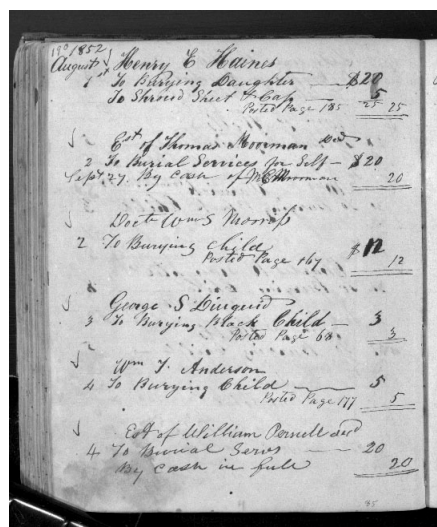 190 1852
August 1st Henry E Haines
1 To Burying Daughter — $20
To Shroud Sheet & Cap — 5
Posted Page 185 25 25
Est of Thomas Moorman Decd
2 To Burial Services for Self — $20
Sept 27 By Cash of Moorman 20
Doctr Wm S Morris
2 To Burying Child $12
Posted Page 167 12
George S Diuguid
3 To Burying Black Child — 3
Posted Page 68 3
Wm T. Anderson
4 To Burying Child — 5
Posted Page 177 5
Est of William Pernell Decd
4 To Burial Servs — 20
By Cash in full 20